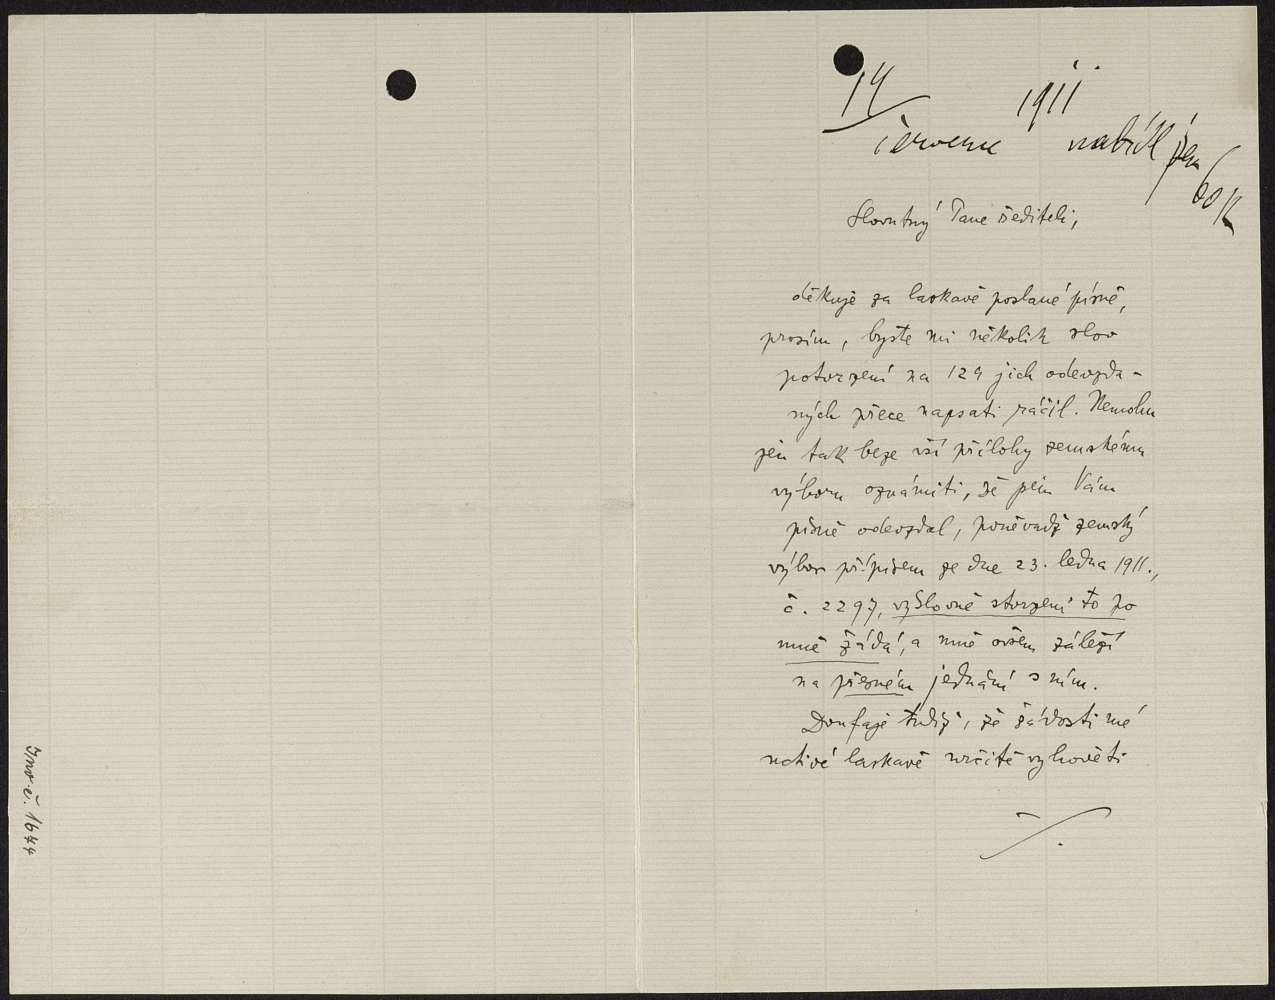 14/ 1911
července nabídl jsem
60 K
Slovutný Pane řediteli,
děkuje za laskavě poslané písně,
prosím, byste mi několik slov
potvrzení na 129 jich odevzda-
ných přece napsati ráčil. Nemohu
jen tak beze vší přílohy zemskému
výboru oznámiti, že jsem Vám
písně odevzdal, poněvadž zemský
výbor přípisem ze dne 23. ledna 1911.,
č. 2297, výslovně stvrzení to po
mně žádá, a mně ovšem záleží
na přesném jednání s ním.
Doufaje tudíž, že žádosti mé
uctivé laskavě určitě vyhovíte
Inv. č. 1674